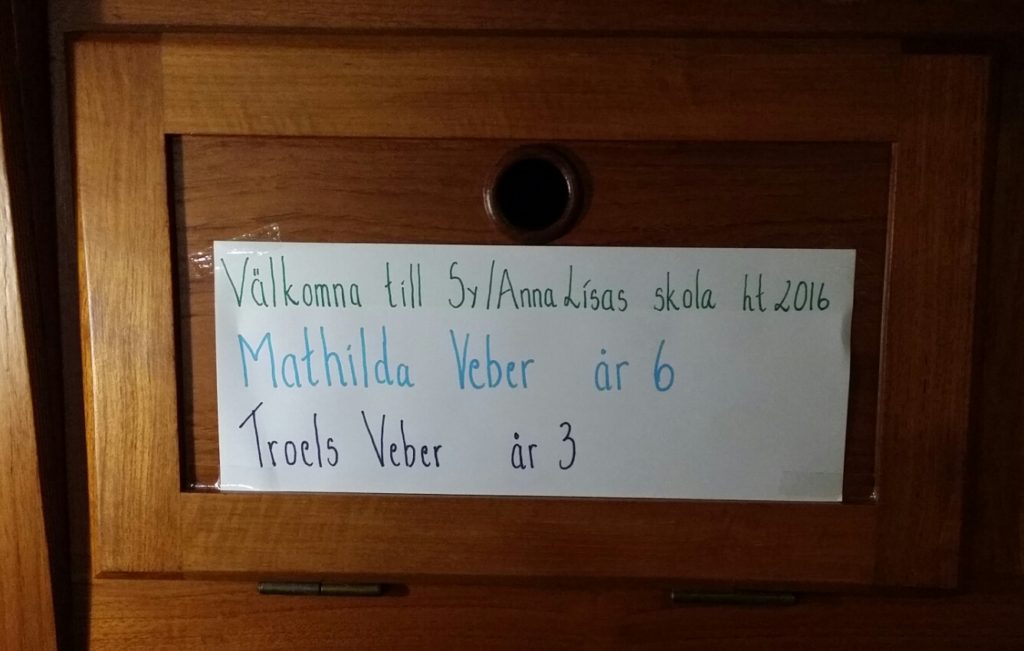 Välkomna till Sy/Anna Lisas skola ht 2016
Mathilda Veber år 6
Troels Veber år 3